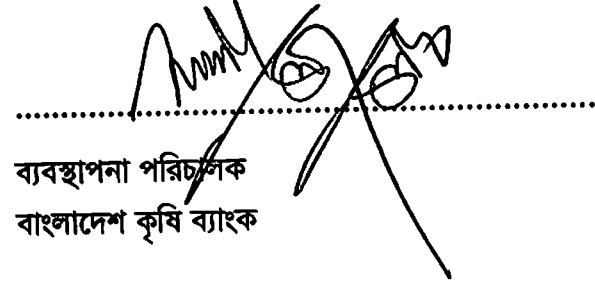 ব্যবস্থাপনা পরিচালক
বাংলাদেশ কৃষি ব্যাংক